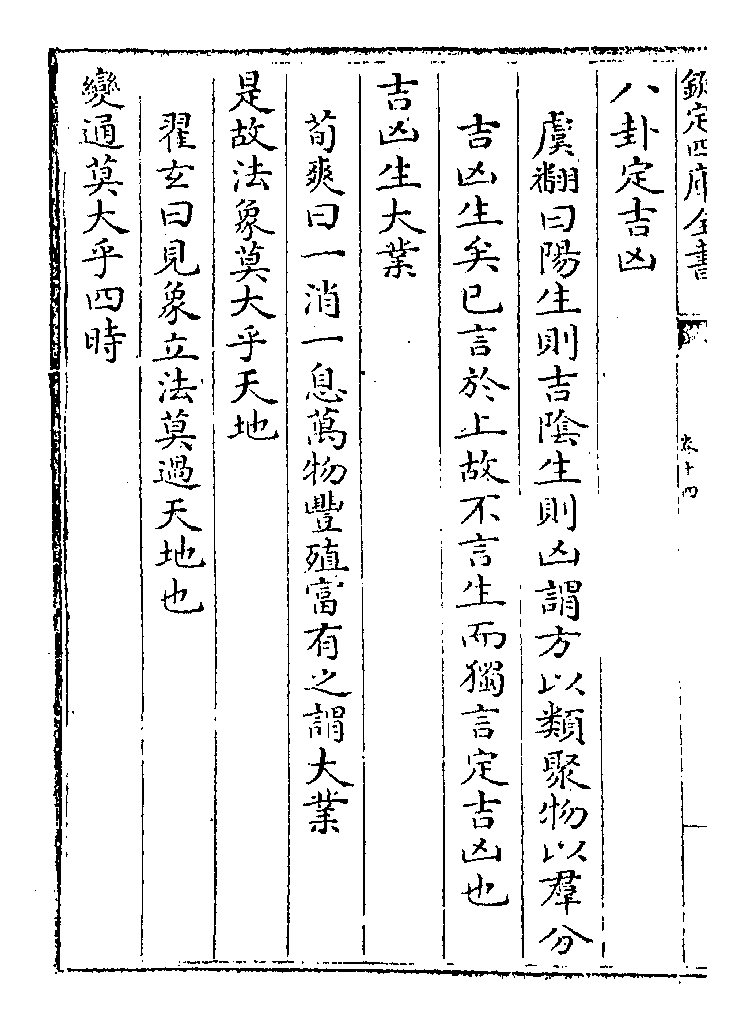 欽定四庫全書
卷十四
八卦定吉凶
虞翻曰陽生則吉陰生則凶謂方以類聚物以羣分
吉凶生矣已言於上故不言生而獨言定吉凶也
吉凶生大業
荀爽曰一消一息萬物豐殖富有之謂大業
是故法象莫大乎天地
翟玄曰見象立法莫過天地也
變通莫大乎四時